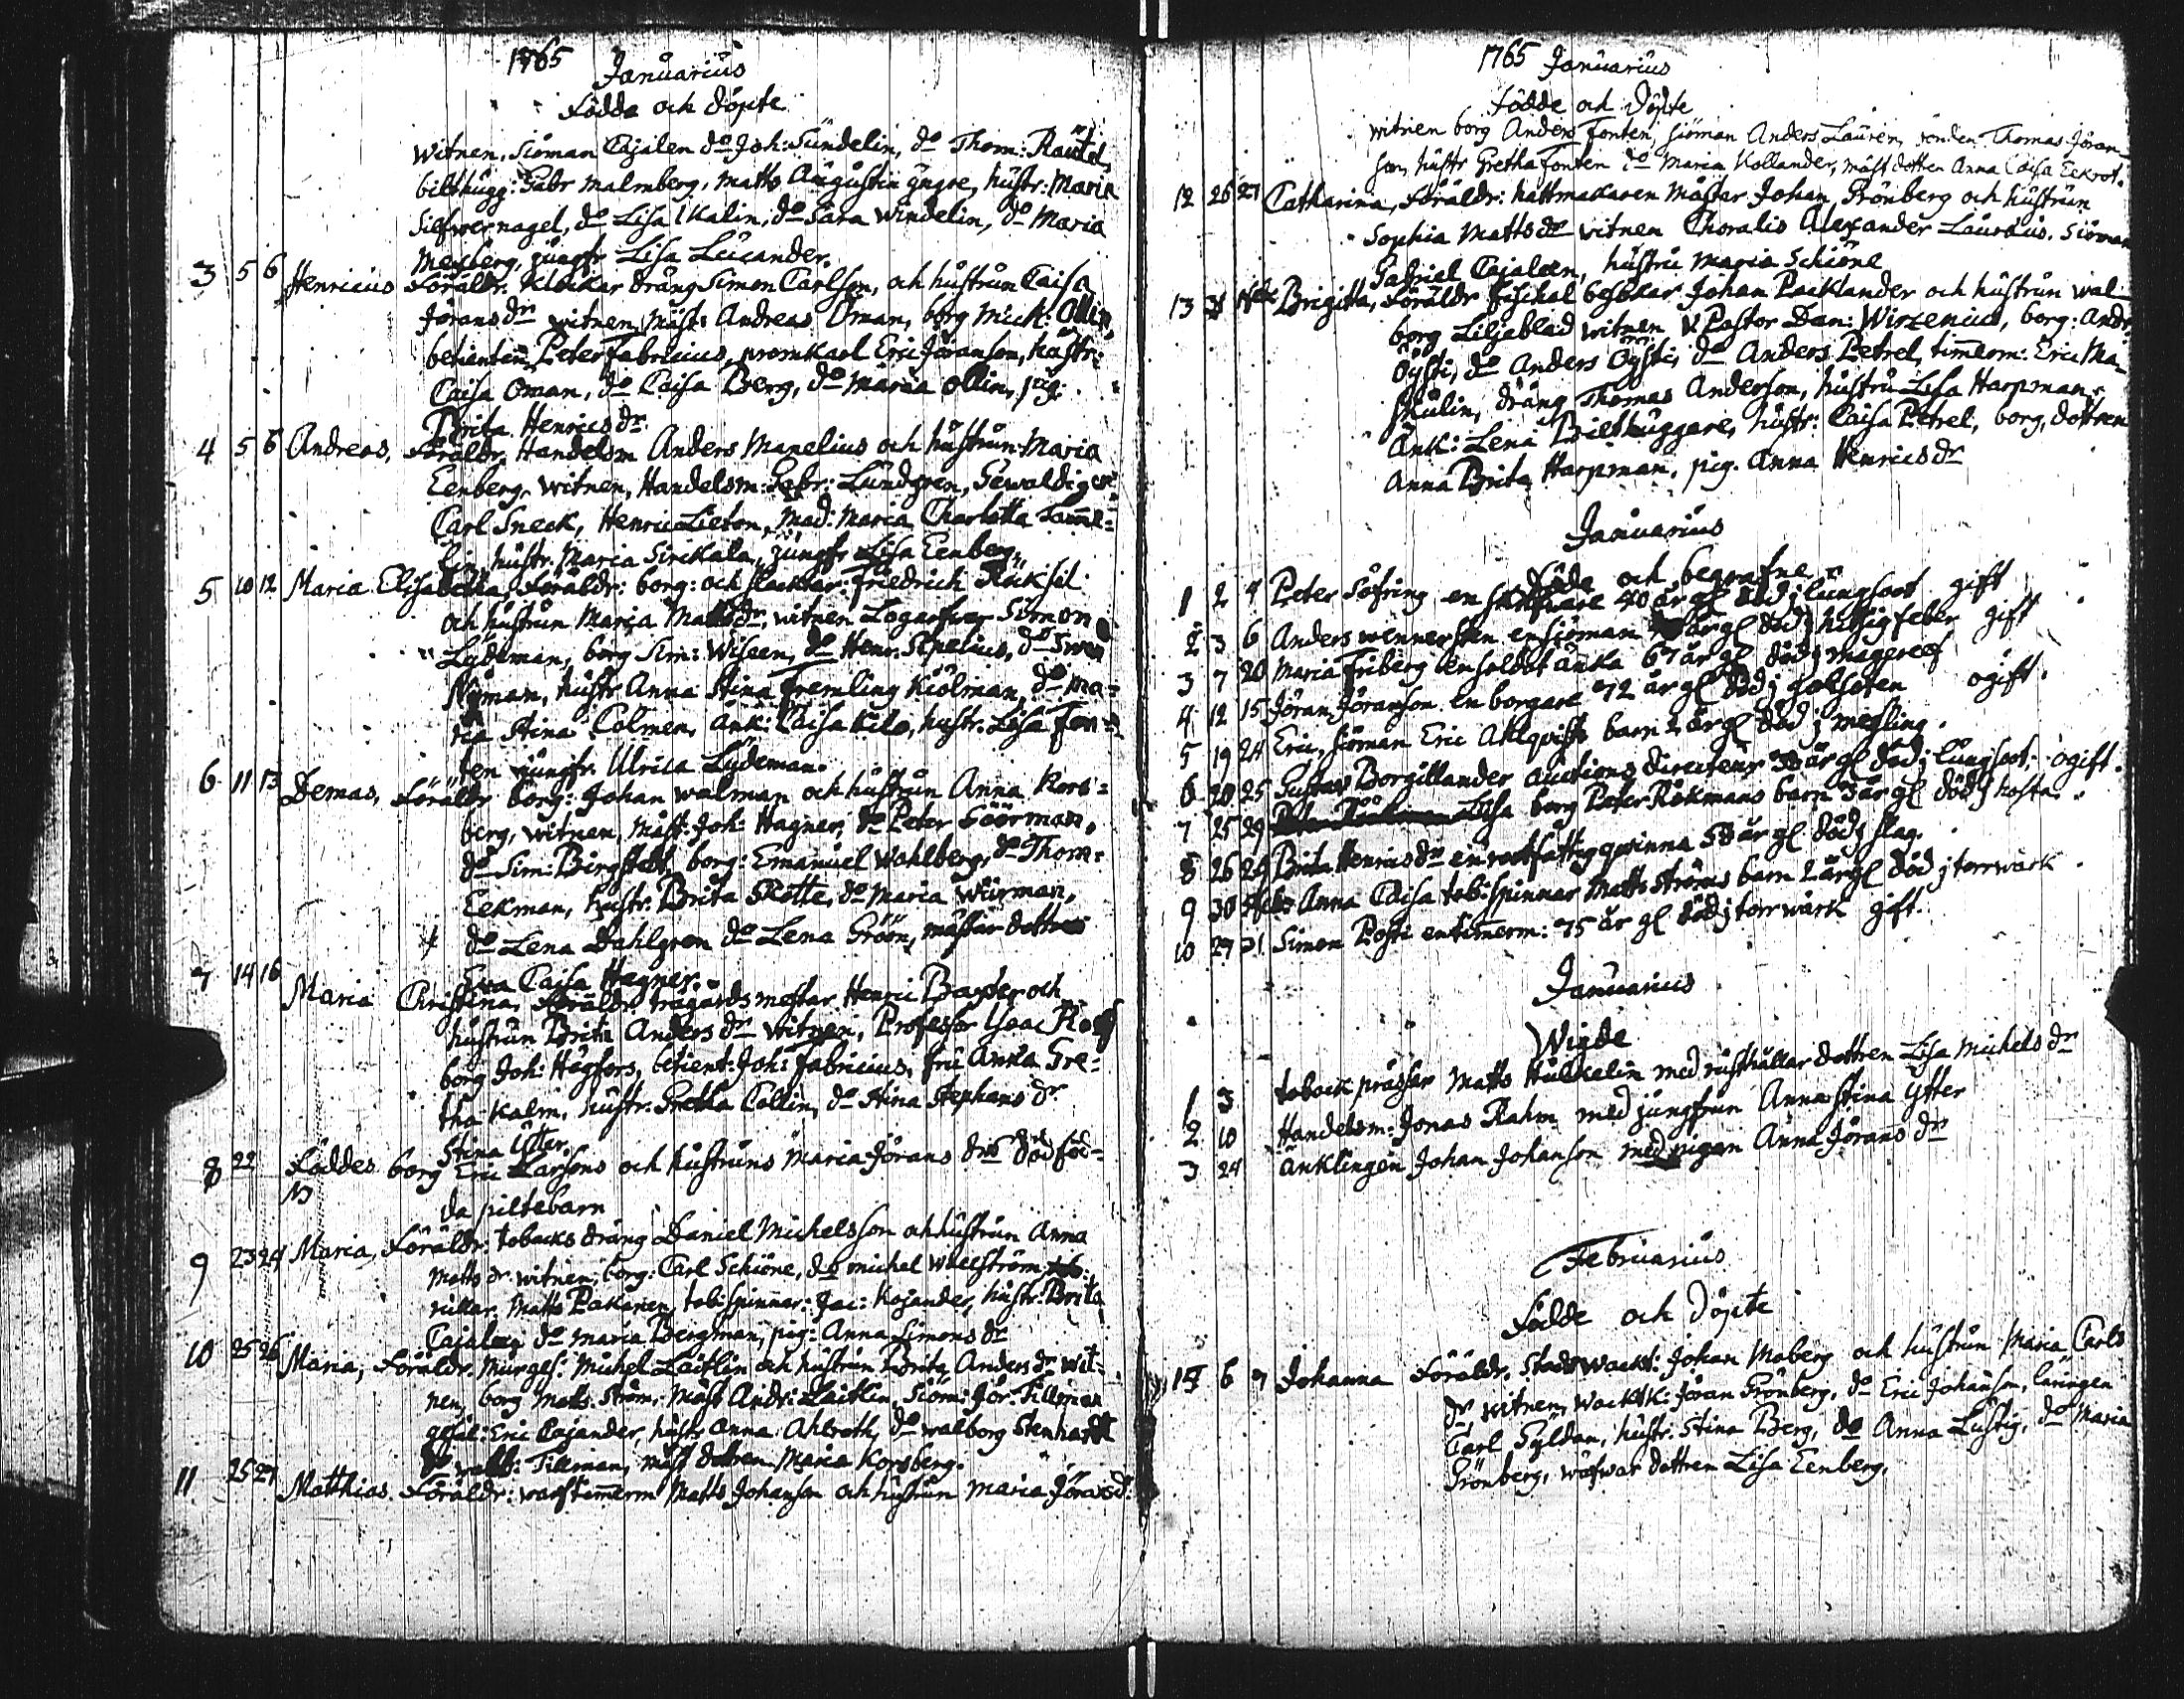 1765
Januarius
Födde och döpte
witnen, Siöman Cajalen do Joh: Sundelin, do Thom:
bilthugg: Gabr Malmberg, Matts Augustin yngre, hustr: Maria
Silfwernagel, do Lisa Kalin, do Sara Windelin, do Maria
Meyberg, jungfr Lisa Lucander.
3 5 6 Henricus Föräldr. Klockar dräng Simon Carlson, och hustrun Caisa
Jörans dr witnen, mäst: Andreas Öman, borg Mich: Ollin,
betienten Peter Fabricius, promkarl Eric Jöranson, hustr:
Caisa Öman, do Caisa Berg, do Maria Ollin, pig:
Brita Henrics dr
4 5 6 Andreas, Föräldr. Handelsm Anders Manelius och hustrun Maria
Eenberg. witnen, Handelsm: Gabr: Lundgren, Gewaldiger
Carl Sneck, Henric Lieton, Mad: Maria Charlotta Tamme-
lin, hustr. Maria Sirikala, jungfr Lisa Eenberg
5 10 12 Maria Elisabetha, Föräldr: borg: och slacktar: Friedrich
och hustrun Maria Matts dr, witnen Logarfwar Simon
Lydeman, borg Sim: Wiseen, do Henr. Sipelius, do Swen
Nyman, hustr Anna Stina Fremling Kiölman, do Ma-
ria Stina Colmen, änk: Caisa Kilo, hustr. Lisa Fon-
ten jungfr. Ulrica Lydeman.
6 11 13 Demas, Föräldr borg: Johan Walman och hustrun Anna Kors-
berg, witnen, mäst: Joh: Hagner, do Peter Söörman,
do Sim: Bergstedt, borg: Emanuel Wahlberg, do Thom:
Eekman, hustr. Brita Skotte, do Maria Würman,
do Lena Dahlgren do Lena Gröön, mästar dottren
Ewa Caisa Hagner.
7 14 16 Maria Christina, Föräldr. trägårdsmestar Henric Baxter och
hustrun Brita Anders dr witnen, Professor Isac
borg Joh: Högfors, betient: Joh: Fabricius, fru Anna Gre-
tha Kalm, hustr. Gretha Collin, do Stina Stephans dr
Stina Utter.
8 22 Föddes borg Eric Larsons och hustruns Maria Jörans drs dödföd-
da piltebarn
9 23 24 Maria, Föräldr. tobacks dräng Daniel Michelsson och hustrun Anna
Matts dr. witnen, borg: Carl Schiöne, do Michel Wallström
rullar. Matts Pakarien, tob: spinnar: Jac: Kojander, hustr. Brita
Cajalen do Maria Bergman, pig: Anna Simons dr
10 25 26 Maria, Föräldr. Murges: Michel Laitlin och hustrun Brita Anders dr wit-
nen, borg Matts. Ström, mäst Andr: Laitlin, Siöm: Jör: Tillman
gesäl: Eric Cajander, hustr Anna Ahlroth, do Walborg Stenhardt
Tillman, mäst dottren Maria Korsberg.
11 25 27 Matthias Föräldr: warfstimmerm Matts Johanson och hustrun Maria Jörans d:
1765 Januarius
Födde och Döpte
witnen borg Anders Fonten, siöman Anders Lauren, Thomas Jöran
son, hustr Gretha Fonten do Maria Kollander, mäst dotten Anna Caisa Eckrot.
12 26 27 Catharina, Föräldr: hattmakaren Mästar Johan Grönberg och hustrun
Sophia Matts dr witnen Choralis Alexander Lauraus. Siöman
Gabriel Cajaleen, hustru Maria Schiöne
13 Brigitta, Föräldr fischal besökar Johan Packlander och hustrun Wal-
borg Liljeblad witnen V Pastor Dan: Wirzenius, borg: Andr:
Öysti, do Anders Öysti, do Anders Petrel, timmerm: Eric Ma-
skulin, dräng Thomas Anderson, hustru Lisa Harpman,
Änk: Lena Bilthuggare, hustr: Caisa Petrel, borg, dottren
Anna Brita Harpman, pig. Anna Henrics dr
Januarius
Döde och begrafne
1 2 4 Peter Söfring en 40 år gl död i lungsoot gift
2 3 6 Anders Wennersten en siöman år gl död i hitsig feber gift
3 7 20 Maria Friberg en soldat änka 67 år gl död i magreef
4 12 15 Jöran Jöranson en borgare 72 år gl död i golsoten ogift.
5 19 24 Eric, siöman Eric Ahlqvists barn 2 år gl död i messling.
6 20 25 Gustav Borgillander auctions directeur 38 år gl död i lungsoot, ogift.
7 25 29 Lisa borg Peter Rökmans barn 3 år gl död i hosta.
8 26 29 Brita Henrics dr en rotfattig qwinna 58 år gl död i slag.
9 30 Anna Caisa tob: spinnar Matts Ströms barn 2 år gl död i torrwärk
10 27 31 Simon Posti en timmerm: 75 år gl död i torrwärk gift.
Januarius
Wigde
1 3 toback prässar Matts Hulkalin med rusthållar dottren Lisa Michels dr
2 10 Handelsm: Jonas Rahm med jungfrun Anna Stina Ytter
3 24 änklingen Johan Johanson med pigan Anna Jörans dr
Februarius
Födde och Döpte
14 6 7 Johanna Föräldr. Stads wackt: Johan Moberg och hustrun Maria Carls
dr witnen, wacktk: Jöran Grönberg, do Eric Johanson, läringen
Carl Gyldan, hustr. Stina Berg, do Anna Lustig, do Maria
Grönberg, wäfwar dottren Lisa Eenberg.